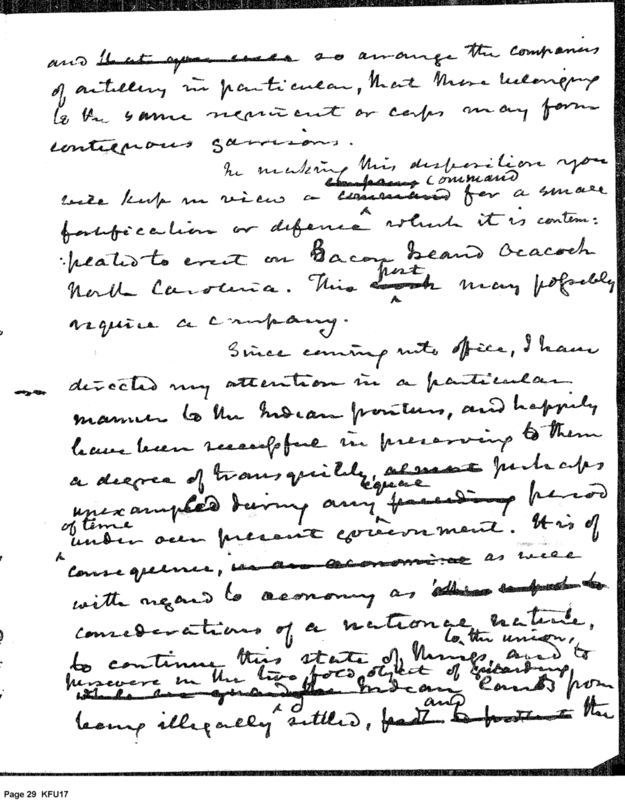 and that upon even so arrange the companies
of artillery in particular, that those belonging
to the same regiment or corps may form
contiguous garrisons.
In making this disposition you
company command
will keep in view a command for a small
fortification or defence which it is contem:
:plated to erect on Bacon Island Ocacock
post
North Carolina. This work may possibly
require a company.
Since coming into office, I have
directed my attention in a particular
manner to the Indian frontiers, and happily
have been successful in preserving to them
a degree of tranquility, almost perhaps
equal
unexampled during any preceding period
of time
under our present government. It is of
consequence, in an economical as well
with regard to economy as
considerations of a national nature,
to the union,
to continue this state of things, and to
persevere in the two fold object of guarding
Indian lands from
being illegally settled, and the
Page 29 KFU17